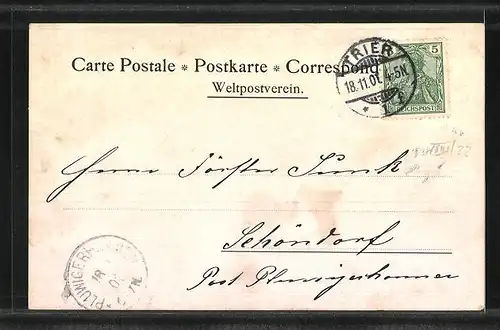 Carte Postale * Postkarte * Correspond
Weltpostverein.
TRIER
18.11.01. 4-5N.
5
REICHSPOST
Herrn Förster Junk
Schöndorf
Post Pluwigerhammer
PLUWIGERHAMMER
18